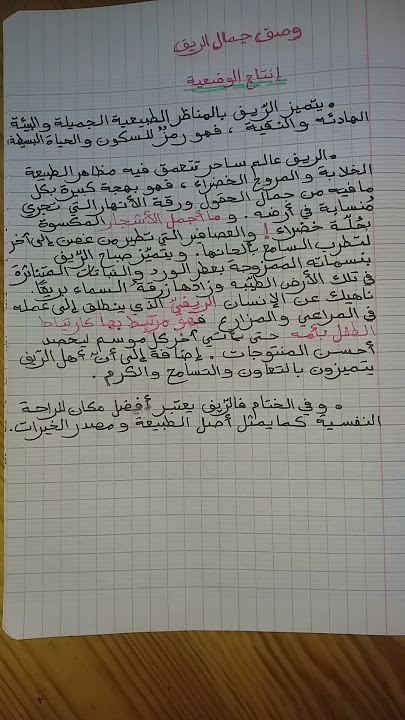 وصف جمال الريف
إنتاج الوضعية
• يتميز الرّيف بالمناظر الطبيعية الجميلة والبيئة
الهادئة والنقية ، فهو رمزٌ للسكون والحياة البسيطة.
• الريف عالم ساحر تتعمق فيه مظاهر الطبيعة
الخلابة و المروج الخضراء ، فهو بهجة كبيرة بكل
ما فيه من جمال الحقول ورقة الأنهار التي تجري
مُنسابة في أرضه . و ما أجمل الأشجار المكسوة
بحُلّة خضراء ! والعصافير التي تطير من غصن إلى آخر
لتطرب السامع بألحانها. و يتميّز صباح الرّيف
بنسماته الممزوجة بعطر الورد و النباتات المتناثرة
في تلك الأرض الطيّبة وزادها زرقة السماء بريقًا.
ناهيك عن الإنسان الريفيّ الذي ينطلق إلى عمله
في المراعي والمزارع فهو مرتبط بها كارتباط
الطفل بأمه حتى يأتي آخر كل موسم ليحصد
أحسن المنتوجات . إضافة إلى أنّ أهل الرّيف
يتميزون بالتعاون والتسامح والكرم .
• و في الختام فالرّيف يعتبر أفضل مكان للراحة
النفسية كما يمثل أصل الطبيعة و مصدر الخيرات.